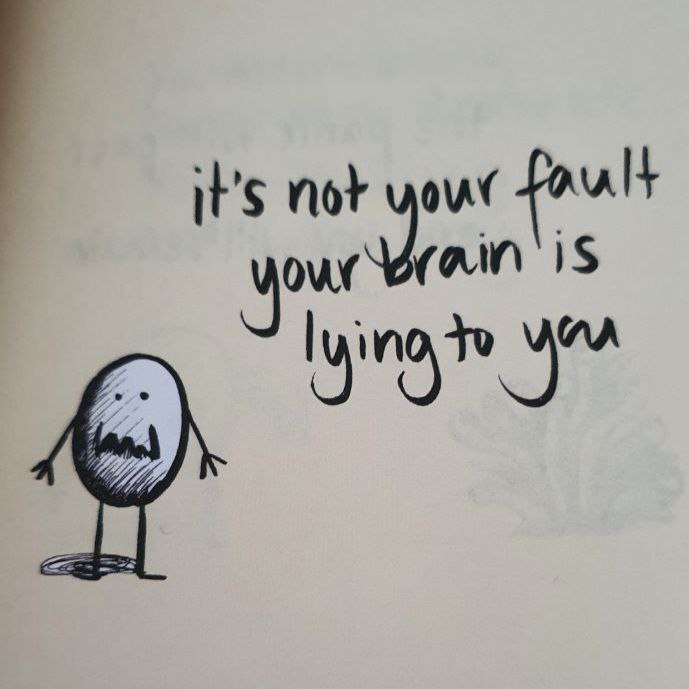 it's not your fault
your brain is
lying to you